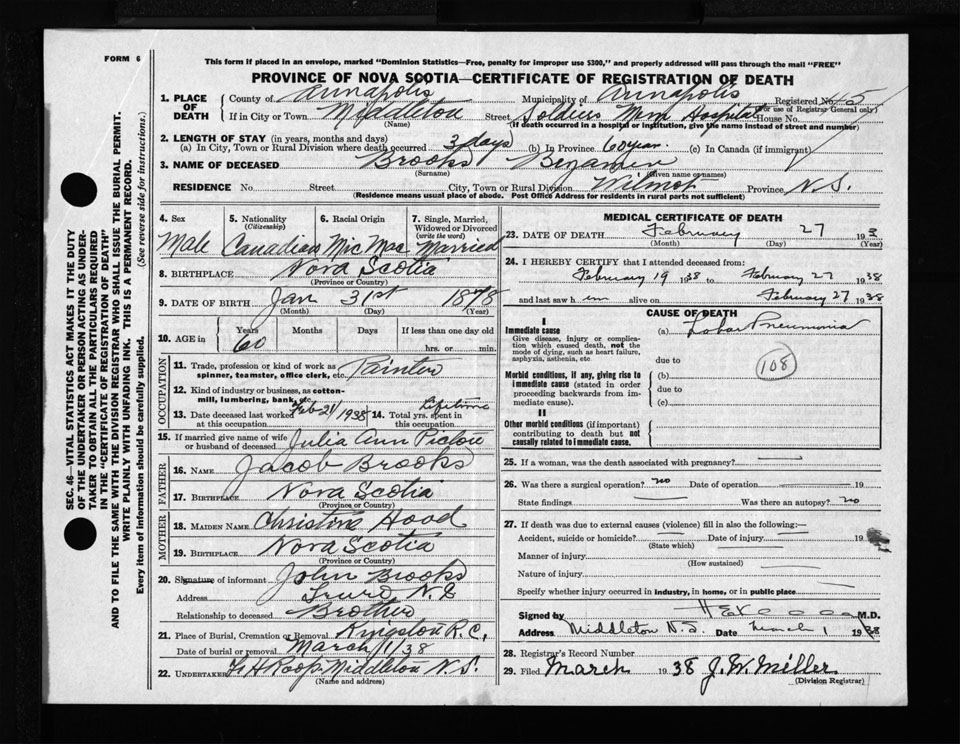 FORM 6
This form if placed in an envelope, marked "Dominion Statistics—Free, penalty for improper use $300," and properly addressed will pass through the mail "FREE"
PROVINCE OF NOVA SCOTIA—CERTIFICATE OF REGISTRATION OF DEATH
SEC. 46—VITAL STATISTICS ACT MAKES IT THE DUTY
OF THE UNDERTAKER OR PERSON ACTING AS UNDER-
TAKER TO OBTAIN ALL THE PARTICULARS REQUIRED
IN THE "CERTIFICATE OF REGISTRATION OF DEATH"
AND TO FILE THE SAME WITH THE DIVISION REGISTRAR WHO SHALL ISSUE THE BURIAL PERMIT.
WRITE PLAINLY WITH UNFADING INK. THIS IS A PERMANENT RECORD.
Every item of Information should be carefully supplied. (See reverse side for instructions.)
1. PLACE OF DEATH
County of Annapolis Municipality of Annapolis Registered No. 45
(For use of Registrar General only)
If in City or Town Middleton Street Soldiers Mem Hospital House No.
(Name) (If death occurred in a hospital or institution, give the name instead of street and number)
2. LENGTH OF STAY (in years, months and days)
(a) In City, Town or Rural Division where death occurred 3 days (b) In Province 60 year (c) In Canada (if immigrant)
3. NAME OF DECEASED Brooks Benjamin
(Surname) (Given name or names)
RESIDENCE No. Street City, Town or Rural Division Wilmot Province N.S.
(Residence means usual place of abode. Post Office Address for residents in rural parts not sufficient)
4. Sex Male
5. Nationality (Citizenship) Canadian
6. Racial Origin Mic Mac
7. Single, Married, Widowed or Divorced (write the word) Married
8. BIRTHPLACE Nova Scotia
(Province or Country)
9. DATE OF BIRTH Jan 31st 1878
(Month) (Day) (Year)
10. AGE in Years 60 Months Days If less than one day old
hrs. or min.
OCCUPATION
11. Trade, profession or kind of work as spinner, teamster, office clerk, etc. Painter
12. Kind of industry or business, as cotton-mill, lumbering, bank, etc.
13. Date deceased last worked at this occupation Feb 21/1938 14. Total yrs. spent in this occupation Lifetime
15. If married give name of wife or husband of deceased Julia Ann Pictou
FATHER
16. NAME Jacob Brooks
17. BIRTHPLACE Nova Scotia
(Province or Country)
MOTHER
18. MAIDEN NAME Christina Hood
19. BIRTHPLACE Nova Scotia
(Province or Country)
20. Signature of informant John Brooks
Address Truro N.S
Relationship to deceased Brother
21. Place of Burial, Cremation or Removal Kingston R.C,
Date of burial or removal March/1/38
22. UNDERTAKER Middleton N.S.
(Name and address)
MEDICAL CERTIFICATE OF DEATH
23. DATE OF DEATH February 27 193
(Month) (Day) (Year)
24. I HEREBY CERTIFY that I attended deceased from:
February 19 1938 to February 27 1938
and last saw h im alive on February 27 1938
CAUSE OF DEATH
I
Immediate cause (a) Lobar Pneumonia
Give disease, injury or complication which caused death, not the mode of dying, such as heart failure, asphyxia, asthenia, etc
due to
108
Morbid conditions, if any, giving rise to immediate cause (stated in order proceeding backwards from immediate cause). (b)
due to
(c)
II
Other morbid conditions (if important) contributing to death but not causally related to immediate cause.
25. If a woman, was the death associated with pregnancy?
26. Was there a surgical operation? no Date of operation 19
State findings Was there an autopsy? no
27. If death was due to external causes (violence) fill in also the following:—
Accident, suicide or homicide? Date of injury 19
(State which)
Manner of injury
(How sustained)
Nature of injury
Specify whether injury occurred in industry, in home, or in public place
Signed by M.D.
Address Middleton N.S. Date March 1 1938
28. Registrar's Record Number
29. Filed March 1938 J. W. Miller
(Division Registrar)